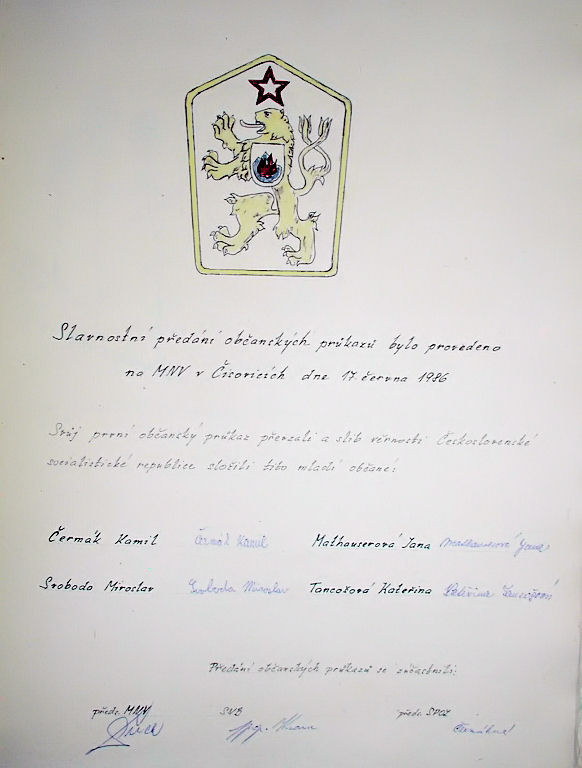 Slavnostní předání občanských průkazů bylo provedeno
na MNV v Čisovicích dne 17. června 1986
Svůj první občanský průkaz převzali a slib věrnosti Československé
socialistické republice složili tito mladí občané:
Čermák Kamil Čermák Kamil Mathauserová Jana Mathauserová Jana
Svoboda Miroslav Svoboda Miroslav Tancošová Kateřina Kateřina Tancošová
Předání občanských průkazů se zúčastnili:
předs. MNV SNB předs. SPOZ